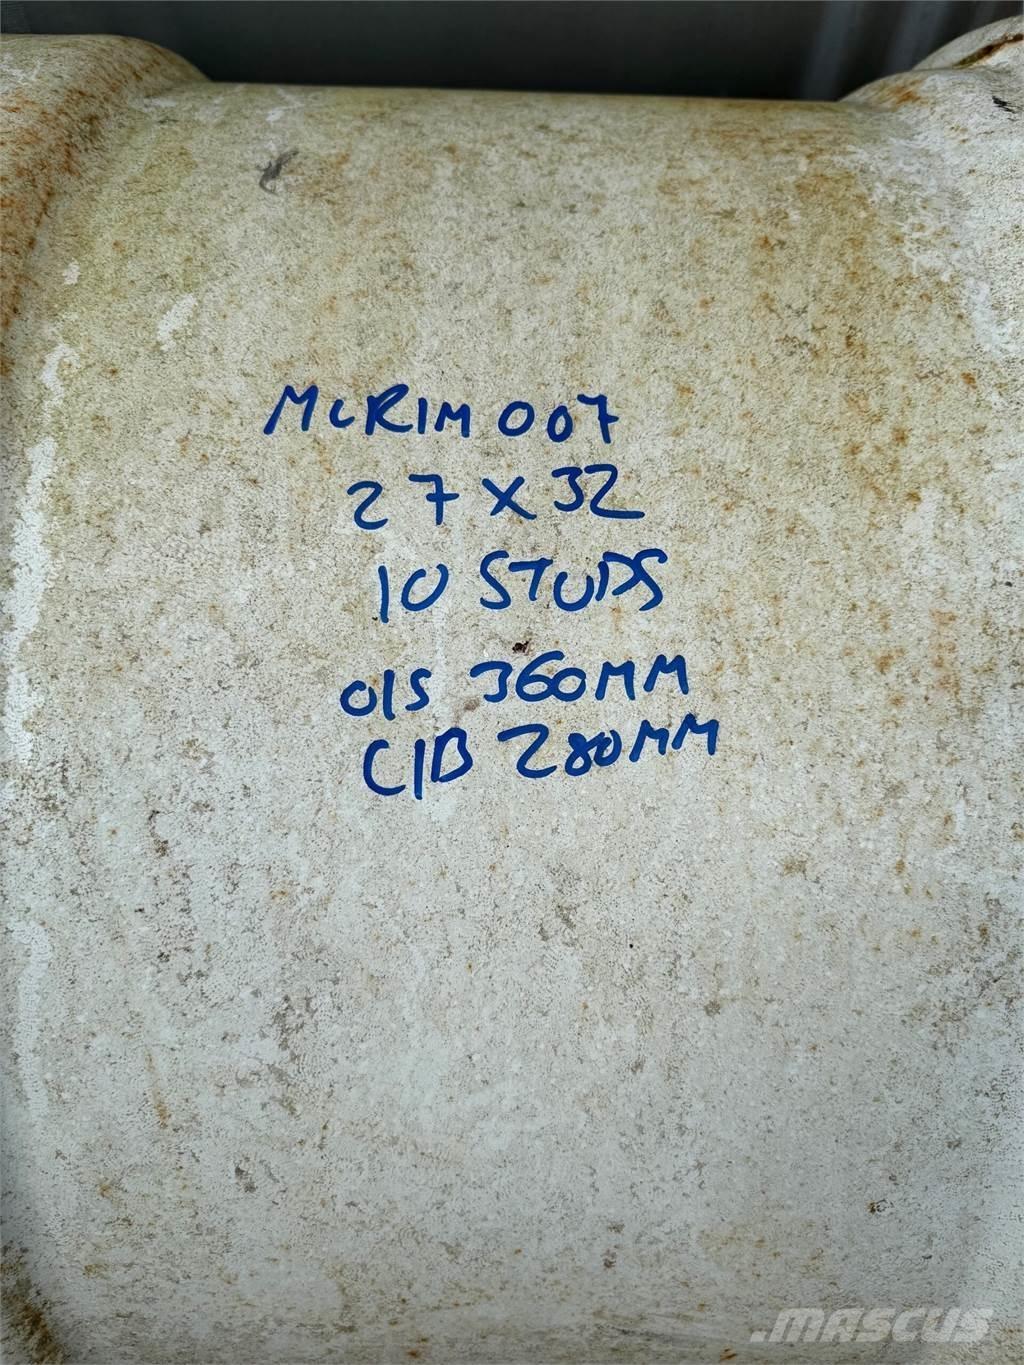 MCRIM 007
27 X 32
10 STUDS
O/S 360MM
C/B 280MM
MASCUS